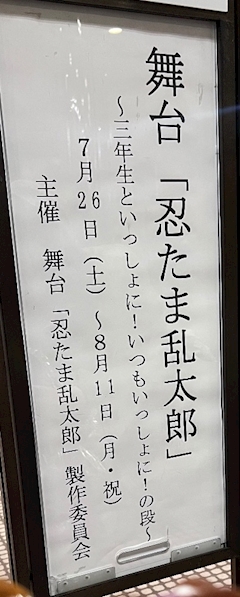 舞台 「忍たま乱太郎」
～三年生といっしょに！いつもいっしょに！の段～
7月26日（土）～8月11日（月・祝）
主催 舞台「忍たま乱太郎」製作委員会